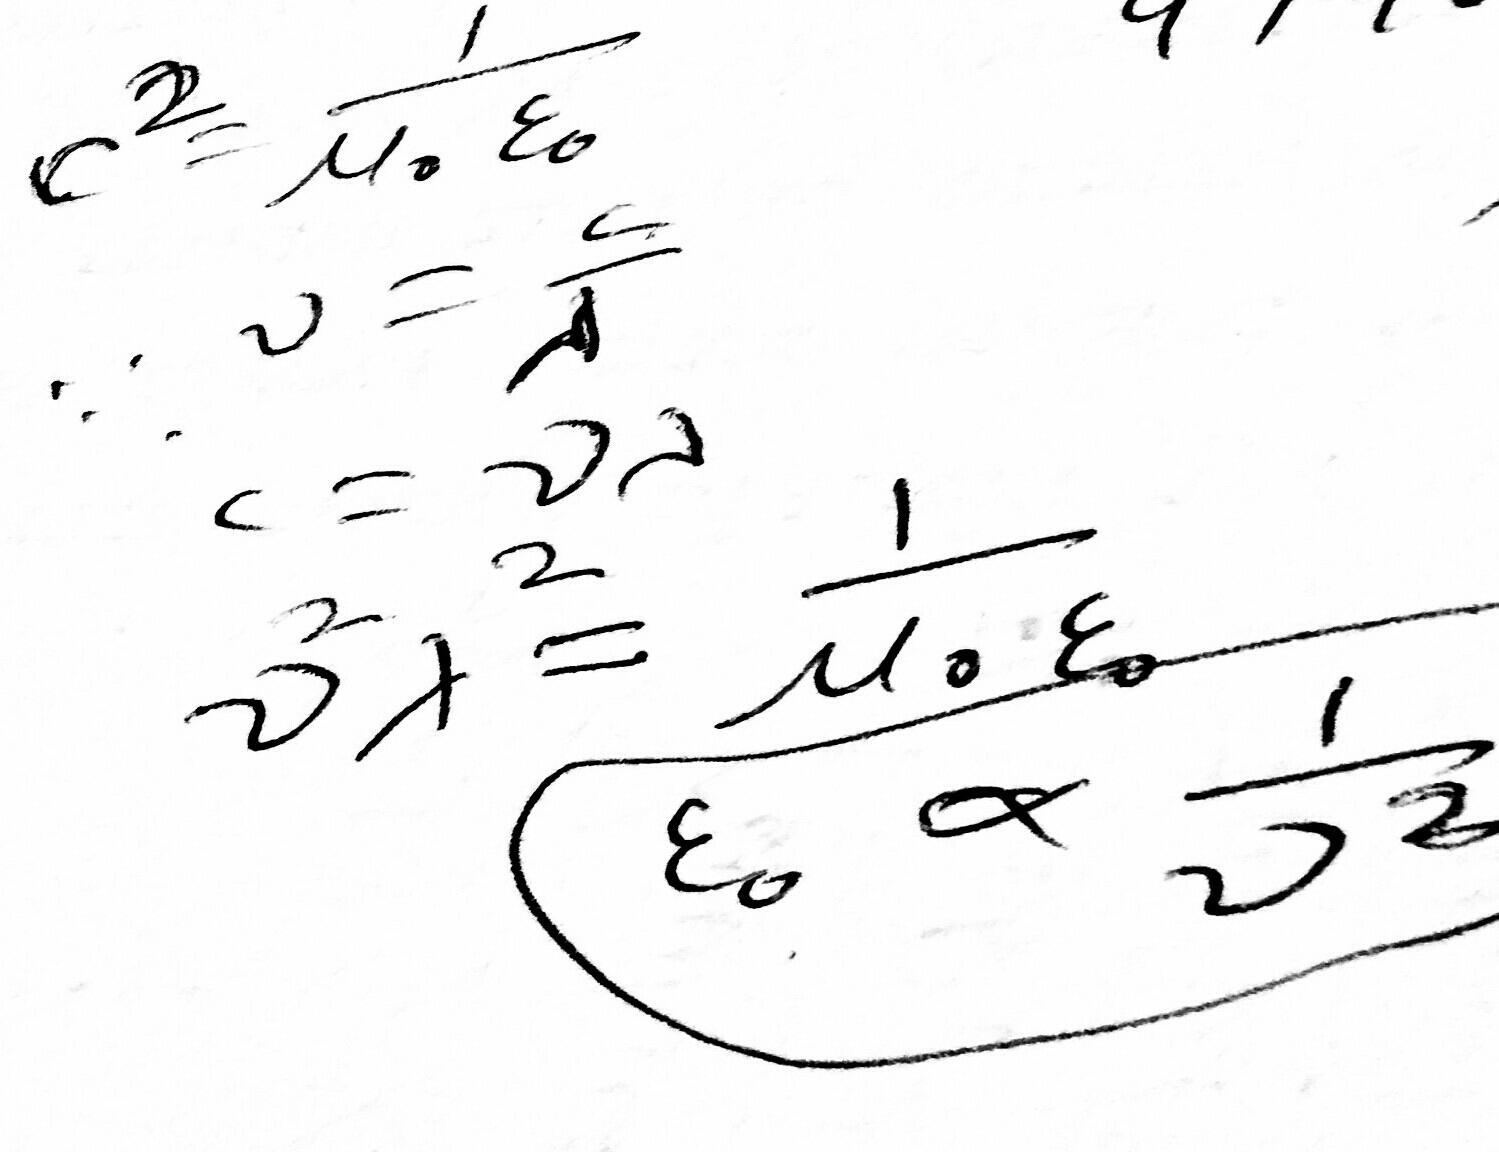 c² = 1/μ₀ε₀
ν = c/λ
∴
c = νλ
ν²λ² = 1/μ₀ε₀
ε₀ ∝ 1/ν²